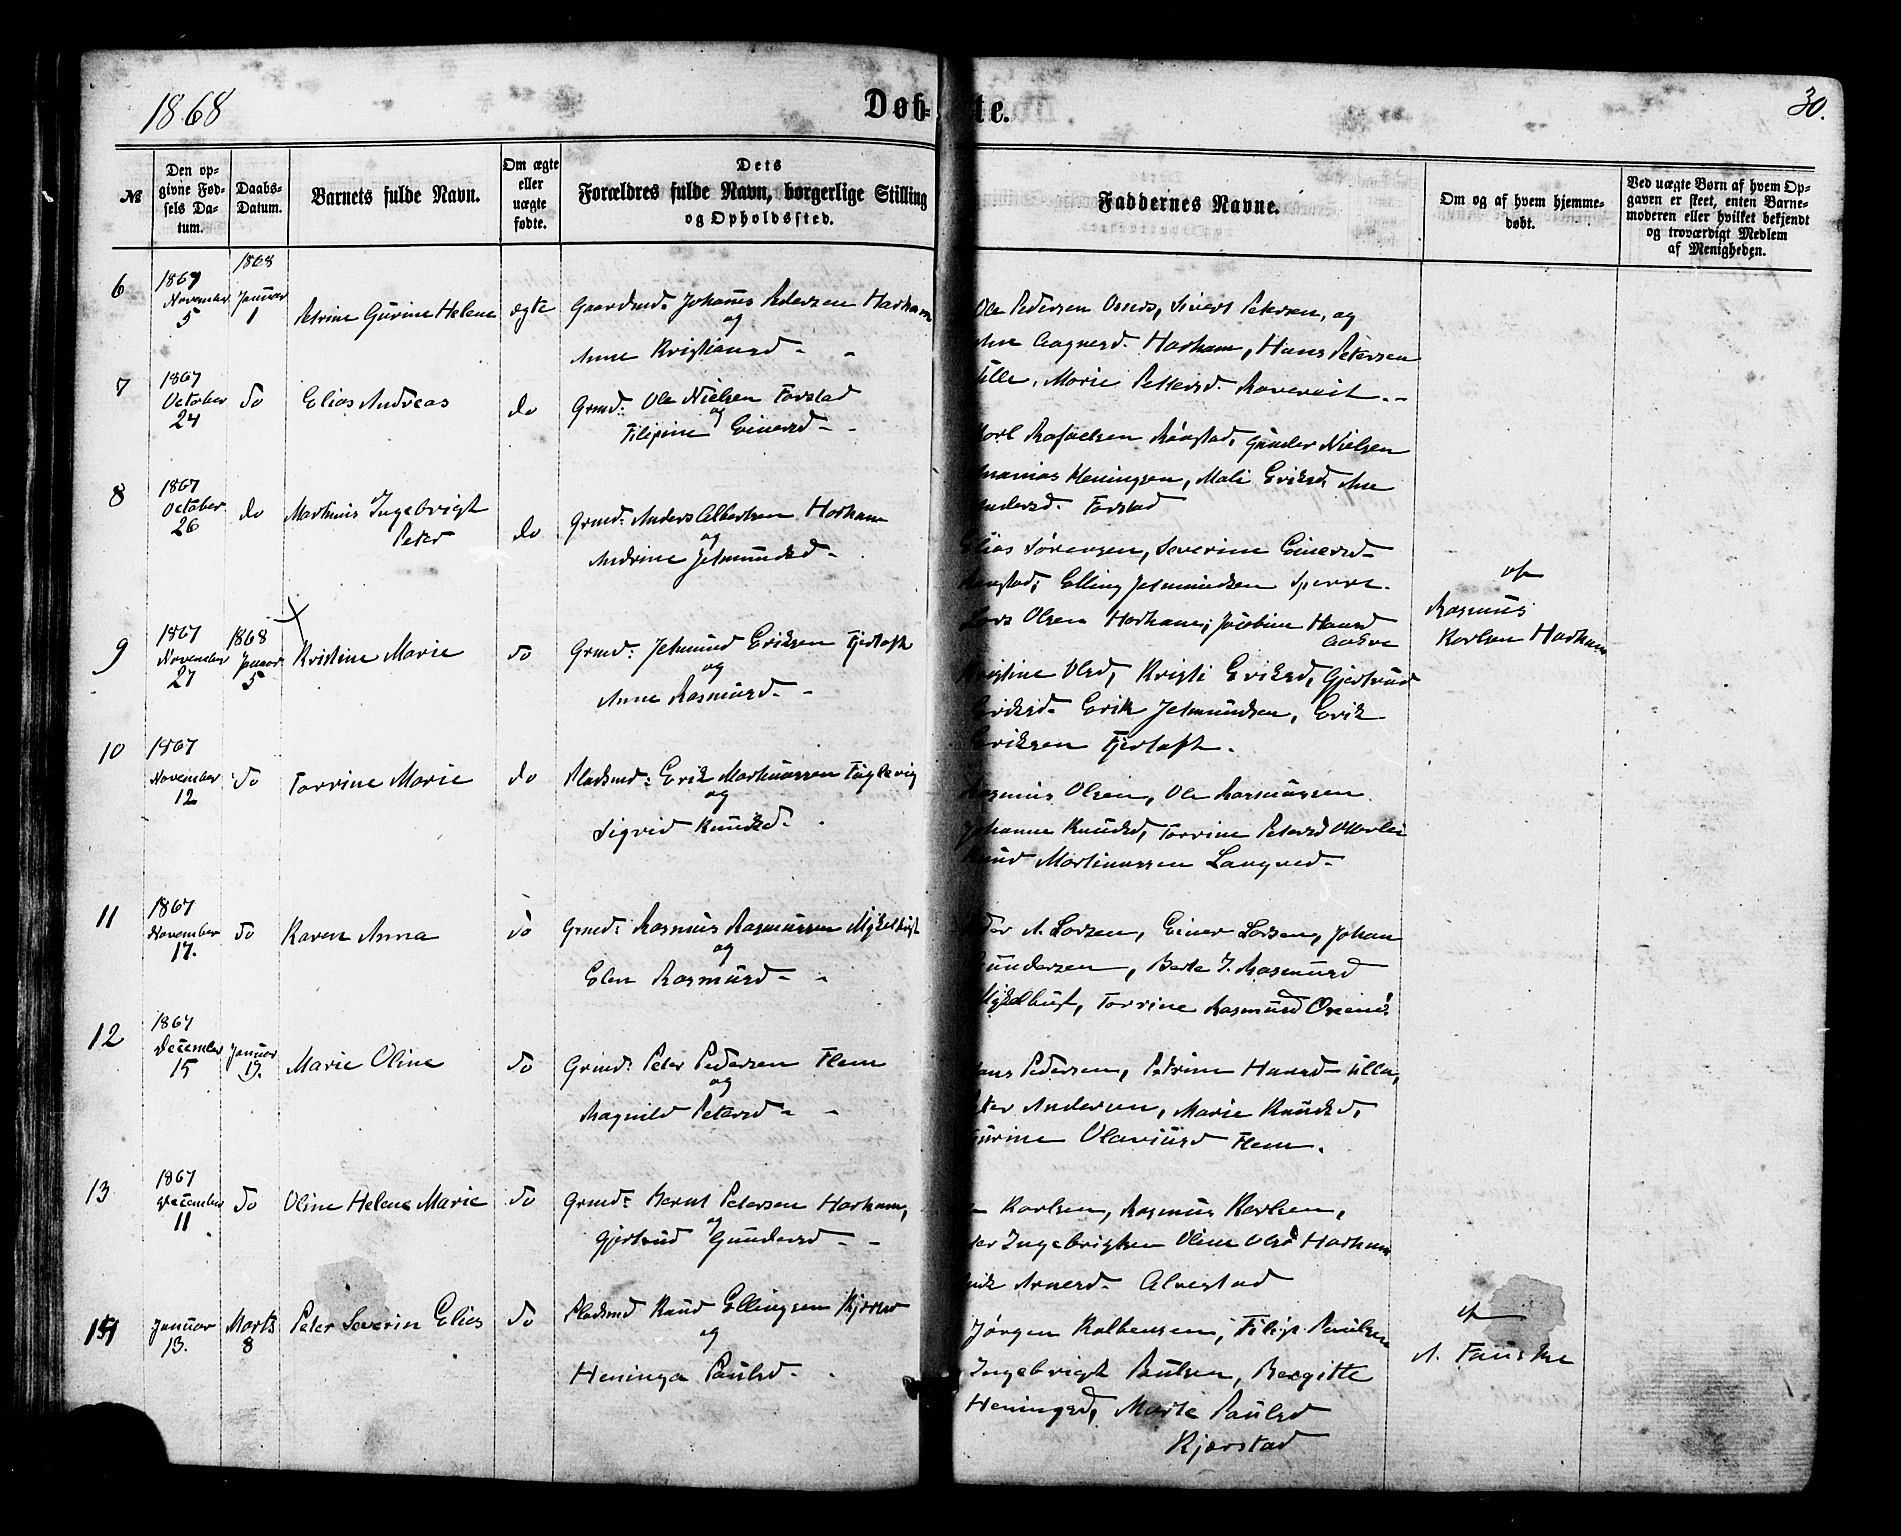 1868
Døb-
te.
30.
№
Den op-
givne Fød-
sels Da-
tum.
Daabs-
Datum.
Barnets fulde Navn.
Om ægte
eller
uægte
fødte.
Dets
Forældres fulde Navn, borgerlige Stilling
og Opholdssted.
Faddernes Navne.
Om og af hvem hjemme-
døbt.
Ved uægte Børn af hvem Op-
gaven er skeet, enten Barne-
moderen eller hvilket bekjendt
og troværdigt Medlem
af Menigheden.
6
1867
November
5
1868
Januar
1
Petrine Gurine Helene
ægte
Gaardmd: Johannes Pedersen Harham
og
Anne Kristiansd -
Ole Pedersen Osnes, Sivert Petersen, og
Harham, Hans Petersen
Ulle, Marie Petersd.
7
1867
October
24
do
Elias Andreas
do
Grmd: Ole Nielsen Farstad
og
Filipine Einersd -
Rafaelsen Rønstad, Gunder Nielsen
Ananias Heningsen, Mali Eriksd, Ane
Andersd. Farstad
8
1867
October
26
do
Martinus Ingebrigt
Peter
do
Grmd: Anders Albertsen Harham
og
Andrine Jetmundsd -
Elias Sørensen, Severine Einersd -
Elling Jetmundsen Sperre.
Lars Olsen Harham, Jacobine Hansd
Aakre
af
Rasmus
Karlsen Harham
9
1867
November
27
1868
Januar
5
Kristine Marie
do
Grmd: Jetmund Eriksen Fjertoft
og
Anne Rasmusd -
Kristine Olsd, Kristi Eriksd, Gjertrud
Eriksd - Erik Jetmundsen, Erik
Eriksen Fjertoft.
10
1867
November
12
do
Torrine Marie
do
Pladsmd: Erik Martinussen Fuglevig
og
Sigrid Knudsd -
Rasmus Olsen, Ole Rasmussen
Johanne Knudsd, Torrine Petersd
Knud Martinussen Langved -
11
1867
November
17.
do
Karen Anna
do
Grmd: Rasmus Rasmussen Myklebust
og
Elen Rasmusd -
Peder A. Larsen, Einer Larsen, Johan
Gundersen, Berte J. Rasmusd
Myklebust, Torrine Rasmusd
12
1867
December
15
Januar
19.
Marie Oline
do
Grmd: Peter Pedersen Flem
og
Magnild Petersd -
Hans Pedersen, Petrine Hansd - Ulla,
Peter Andersen, Marie Knudsd,
Gurine Olariusd Flem.
13
1867
December
11
do
Oline Helene Marie
do
Grmd: Bernt Petersen Harham,
og
Gjertrud Gundersd -
Karlsen, Rasmus Karlsen,
Ingebrigtsen Oline Olsd Harham
Arnesd - Alvestad
14
Januar
13.
Marts
8
Peter Severin Elias
do
Pladsmd Knud Ellingsen Kjerstad
og
Heninga Paulsd -
Jørgen Kolbensen, Filip Paulsen
Ingebrigt Paulsen, Bergitte
Heningsd, Marte Paulsd
Kjerstad
af
A. Fauske